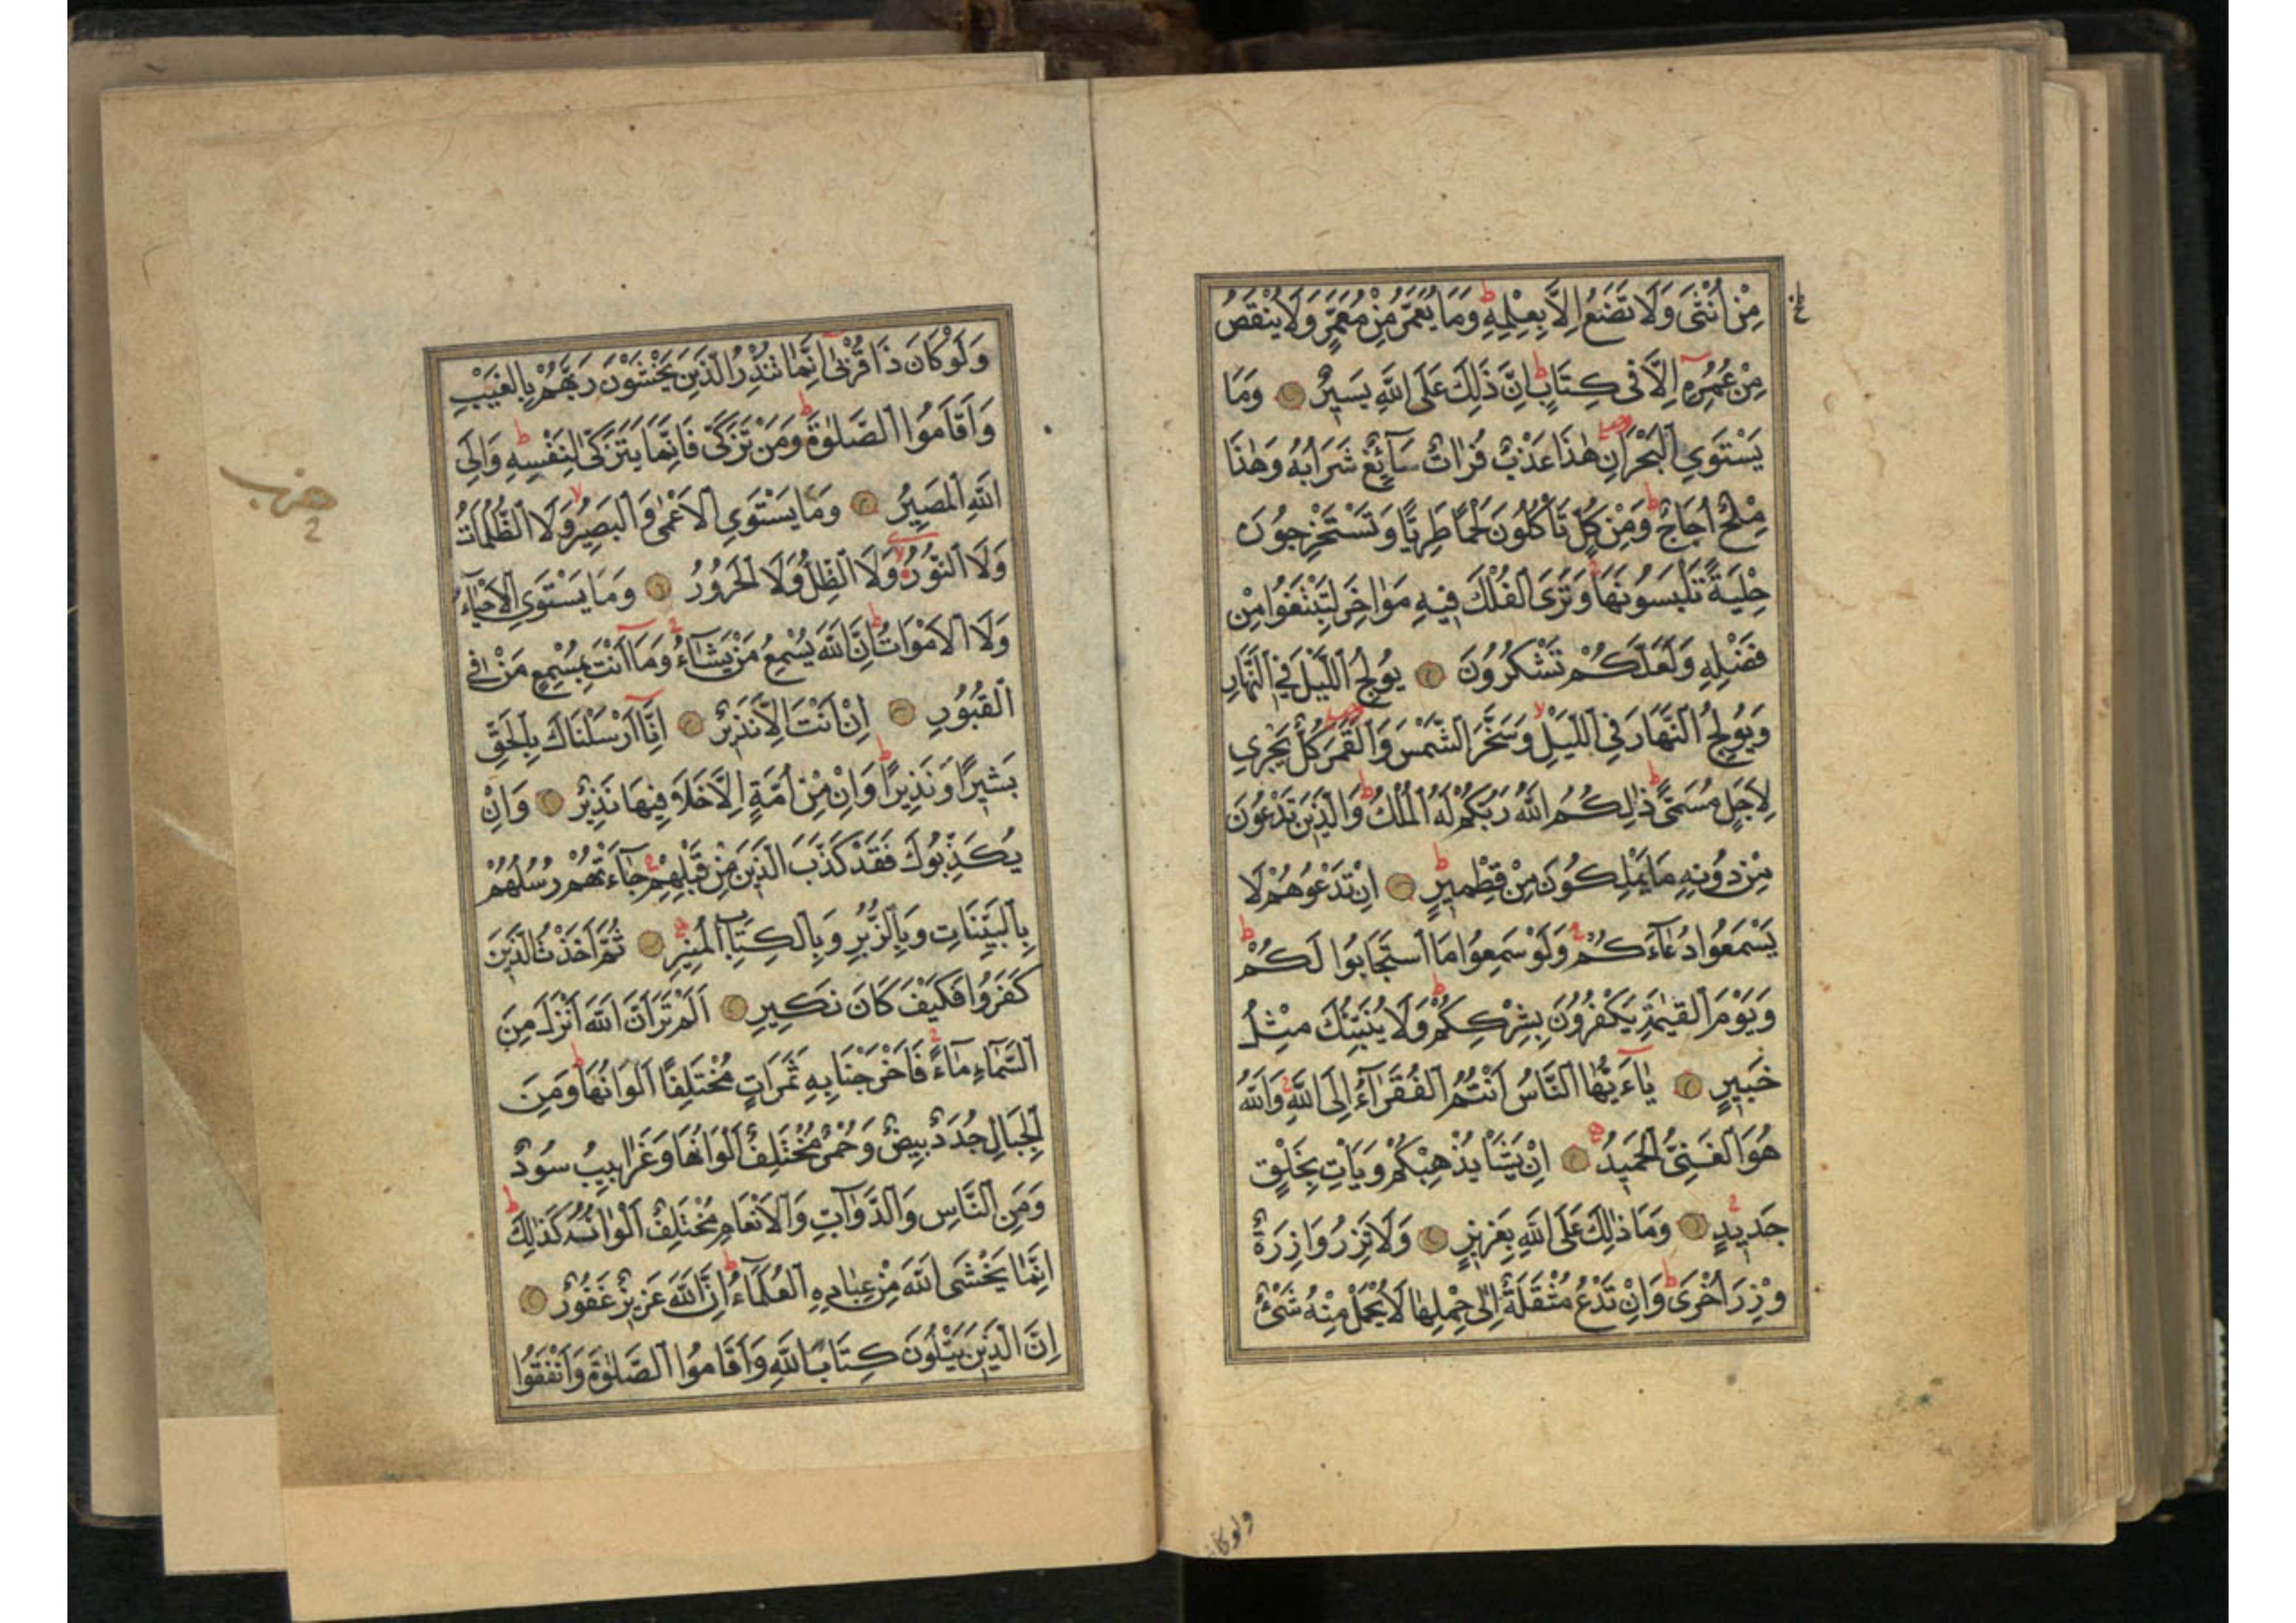 مِنْ اُنْثٰى وَلَا تَضَعُ اِلَّا بِعِلْمِهٖ ط وَمَا يُعَمَّرُ مِنْ مُعَمَّرٍ وَلَا يُنْقَصُ
مِنْ عُمُرِهٖ اِلَّا فٖى كِتَابٍ ط اِنَّ ذٰلِكَ عَلَى اللّٰهِ يَسٖيرٌ وَمَا
يَسْتَوِي الْبَحْرَانِ هٰذَا عَذْبٌ فُرَاتٌ سَآئِغٌ شَرَابُهُ وَهٰذَا
مِلْحٌ اُجَاجٌ ط وَمِنْ كُلٍّ تَأْكُلُونَ لَحْمًا طَرِيًّا وَتَسْتَخْرِجُونَ
حِلْيَةً تَلْبَسُونَهَا ج وَتَرَى الْفُلْكَ فٖيهِ مَوَاخِرَ لِتَبْتَغُوا مِنْ
فَضْلِهٖ وَلَعَلَّكُمْ تَشْكُرُونَ يُولِجُ اللَّيْلَ فِي النَّهَارِ
وَيُولِجُ النَّهَارَ فِي اللَّيْلِ لا وَسَخَّرَ الشَّمْسَ وَالْقَمَرَ كُلٌّ يَجْرٖي
لِاَجَلٍ مُسَمًّى ط ذٰلِكُمُ اللّٰهُ رَبُّكُمْ لَهُ الْمُلْكُ ط وَالَّذٖينَ تَدْعُونَ
مِنْ دُونِهٖ مَا يَمْلِكُونَ مِنْ قِطْمٖيرٍ ط اِنْ تَدْعُوهُمْ لَا
يَسْمَعُوا دُعَآءَكُمْ ج وَلَوْ سَمِعُوا مَا اسْتَجَابُوا لَكُمْ ط
وَيَوْمَ الْقِيٰمَةِ يَكْفُرُونَ بِشِرْكِكُمْ ط وَلَا يُنَبِّئُكَ مِثْلُ
خَبٖيرٍ يٰاءَيُّهَا النَّاسُ اَنْتُمُ الْفُقَرَآءُ اِلَى اللّٰهِ ج وَاللّٰهُ
هُوَ الْغَنِيُّ الْحَمٖيدُ اِنْ يَشَأْ يُذْهِبْكُمْ وَيَأْتِ بِخَلْقٍ
جَدٖيدٍ ج وَمَا ذٰلِكَ عَلَى اللّٰهِ بِعَزٖيزٍ وَلَا تَزِرُ وَازِرَةٌ
وِزْرَ اُخْرٰى ط وَاِنْ تَدْعُ مُثْقَلَةٌ اِلٰى حِمْلِهَا لَا يُحْمَلْ مِنْهُ شَىْءٌ
ولو كان
وَلَوْ كَانَ ذَا قُرْبٰى اِنَّمَا تُنْذِرُ الَّذٖينَ يَخْشَوْنَ رَبَّهُمْ بِالْغَيْبِ
وَاَقَامُوا الصَّلٰوةَ ط وَمَنْ تَزَكّٰى فَاِنَّمَا يَتَزَكّٰى لِنَفْسِهٖ ط وَاِلَى
اللّٰهِ الْمَصٖيرُ وَمَا يَسْتَوِي الْاَعْمٰى وَالْبَصٖيرُ لا وَلَا الظُّلُمَاتُ
وَلَا النُّورُ لا وَلَا الظِّلُّ وَلَا الْحَرُورُ وَمَا يَسْتَوِي الْاَحْيَآءُ
وَلَا الْاَمْوَاتُ ط اِنَّ اللّٰهَ يُسْمِعُ مَنْ يَشَآءُ ج وَمَا اَنْتَ بِمُسْمِعٍ مَنْ فِي
الْقُبُورِ اِنْ اَنْتَ اِلَّا نَذٖيرٌ اِنَّا اَرْسَلْنَاكَ بِالْحَقِّ
بَشٖيرًا وَنَذٖيرًا ط وَاِنْ مِنْ اُمَّةٍ اِلَّا خَلَا فٖيهَا نَذٖيرٌ وَاِنْ
يُكَذِّبُوكَ فَقَدْ كَذَّبَ الَّذٖينَ مِنْ قَبْلِهِمْ جَآءَتْهُمْ رُسُلُهُمْ
بِالْبَيِّنَاتِ وَبِالزُّبُرِ وَبِالْكِتَابِ الْمُنٖيرِ ثُمَّ اَخَذْتُ الَّذٖينَ
كَفَرُوا فَكَيْفَ كَانَ نَكٖيرِ اَلَمْ تَرَ اَنَّ اللّٰهَ اَنْزَلَ مِنَ
السَّمَآءِ مَآءً ج فَاَخْرَجْنَا بِهٖ ثَمَرَاتٍ مُخْتَلِفًا اَلْوَانُهَا ط وَمِنَ
الْجِبَالِ جُدَدٌ بٖيضٌ وَحُمْرٌ مُخْتَلِفٌ اَلْوَانُهَا وَغَرَابٖيبُ سُودٌ
وَمِنَ النَّاسِ وَالدَّوَآبِّ وَالْاَنْعَامِ مُخْتَلِفٌ اَلْوَانُهُ كَذٰلِكَ ط
اِنَّمَا يَخْشَى اللّٰهَ مِنْ عِبَادِهِ الْعُلَمَآءُ ط اِنَّ اللّٰهَ عَزٖيزٌ غَفُورٌ
اِنَّ الَّذٖينَ يَتْلُونَ كِتَابَ اللّٰهِ وَاَقَامُوا الصَّلٰوةَ وَاَنْفَقُوا
حزب
2